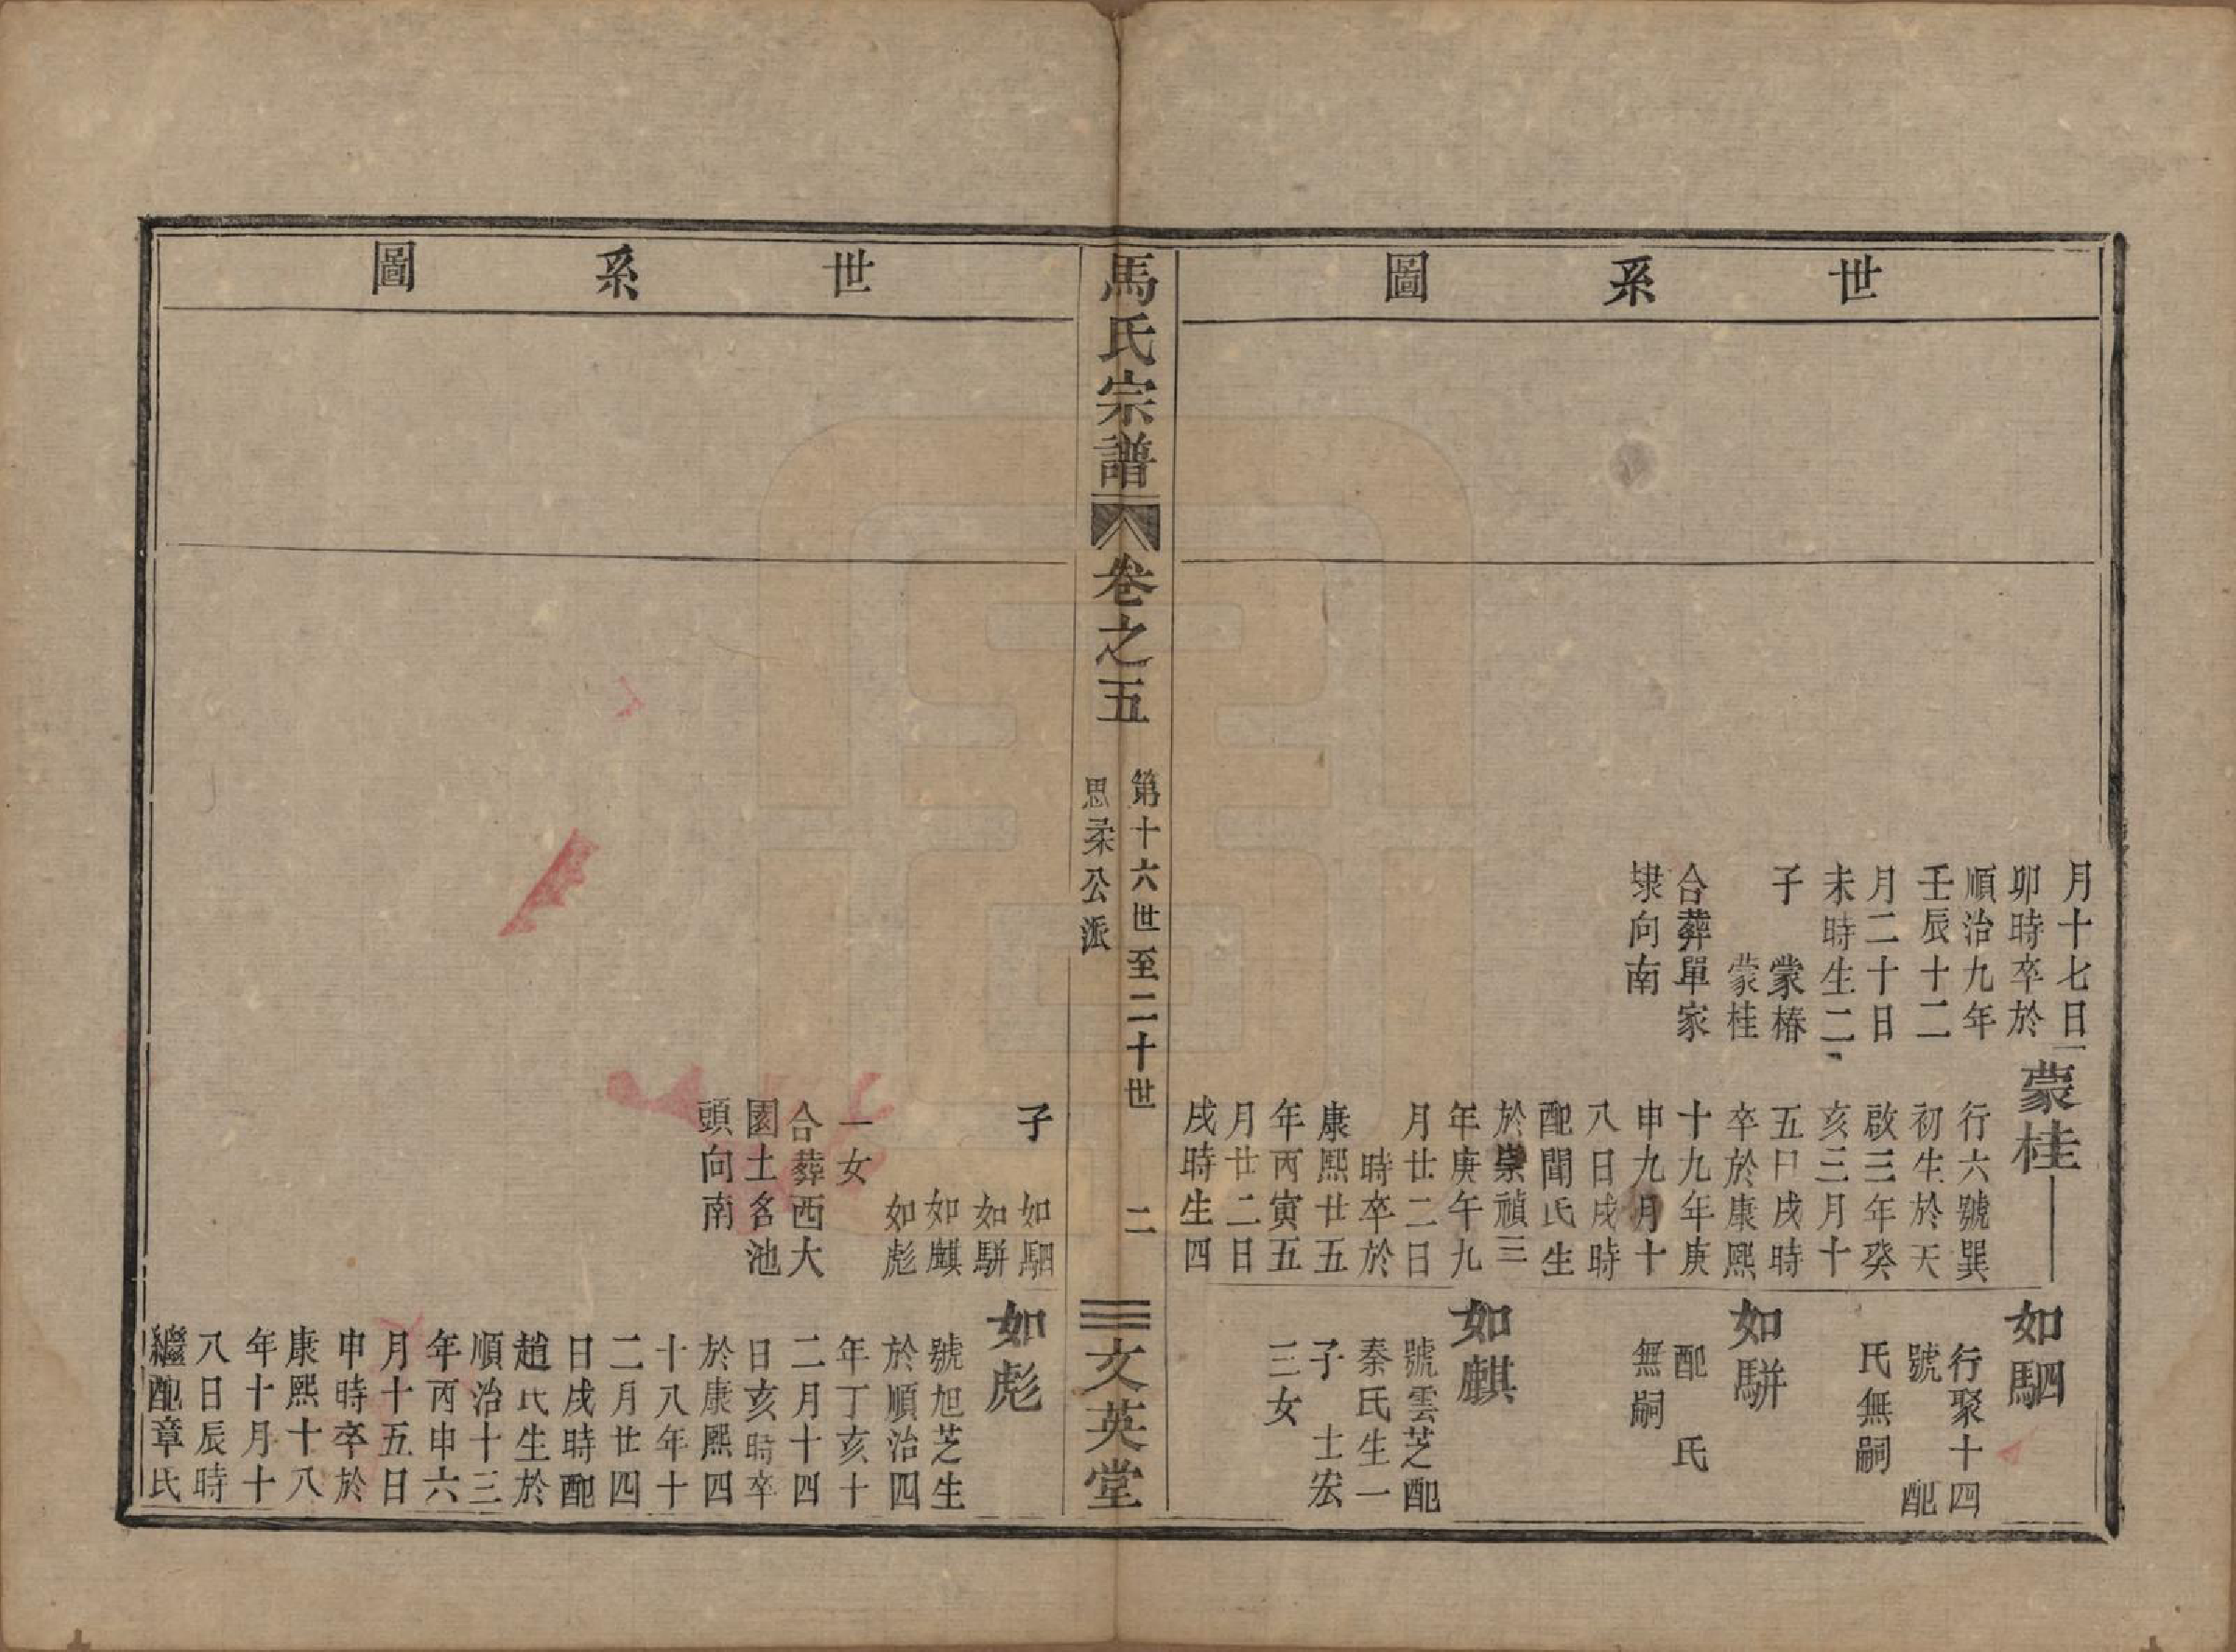 世系圖
月十七日
卯時卒於
順治九年
壬辰十二
月二十日
未時生二
子 蒙椿
蒙桂
合葬單家
埭向南
蒙桂
行六號巽
初生於天
啟三年癸
亥三月十
五日戌時
卒於康熙
十九年庚
申九月十
八日戌時
配聞氏生
於崇禎三
年庚午九
月廿二日
時卒於
康熙廿五
年丙寅五
月廿二日
戌時生四
如駟
行聚十四
號 配
氏無嗣
如駢
配 氏
無嗣
如麒
號雲芝配
秦氏生一
子 士宏
三女
馬氏宗譜 卷之五 第十六世至二十世 思柔公派 二 文英堂
世系圖
子 如駟
如駢
如麒
如彪
一女
合葬西大
園土名池
頭向南
如彪
號旭芝生
於順治四
年丁亥十
二月十四
日亥時卒
於康熙四
十八年十
二月廿四
日戌時配
趙氏生於
順治十三
年丙申六
月十五日
申時卒於
康熙十八
年十月十
八日辰時
繼配章氏